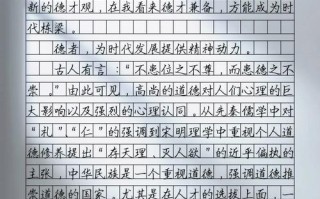 新的德才观，在我看来德才兼备，方能成为时
代栋梁。
德者，为时代发展提供精神动力。
古人有言：“不患位之不尊，而患德之不
崇。”由此可见，高尚的道德对人们心理的巨
大影响以及强烈的心理认同。从先秦儒学中对
“礼”“仁”的强调到宋明理学中重视个人道
德修养提出“存天理，灭人欲”的近乎偏执的
主张，中华民族是一个重视道德，强调道德推
崇道德的国家。尤其是在人才的选拔上面，一